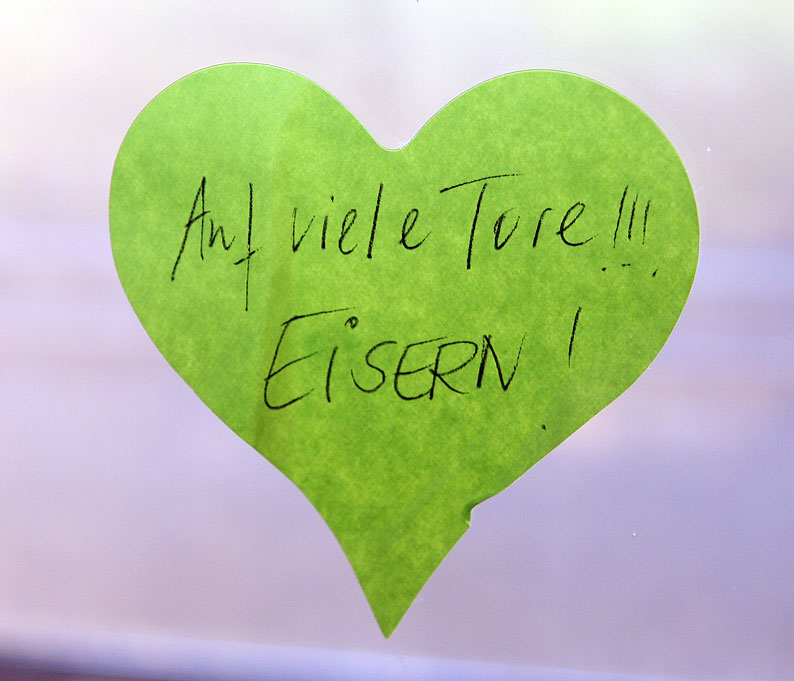 Auf viele Tore!!!
EiSERN!